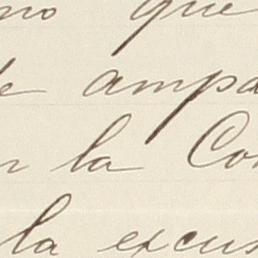 no que
de ampa
n la Con
la excus